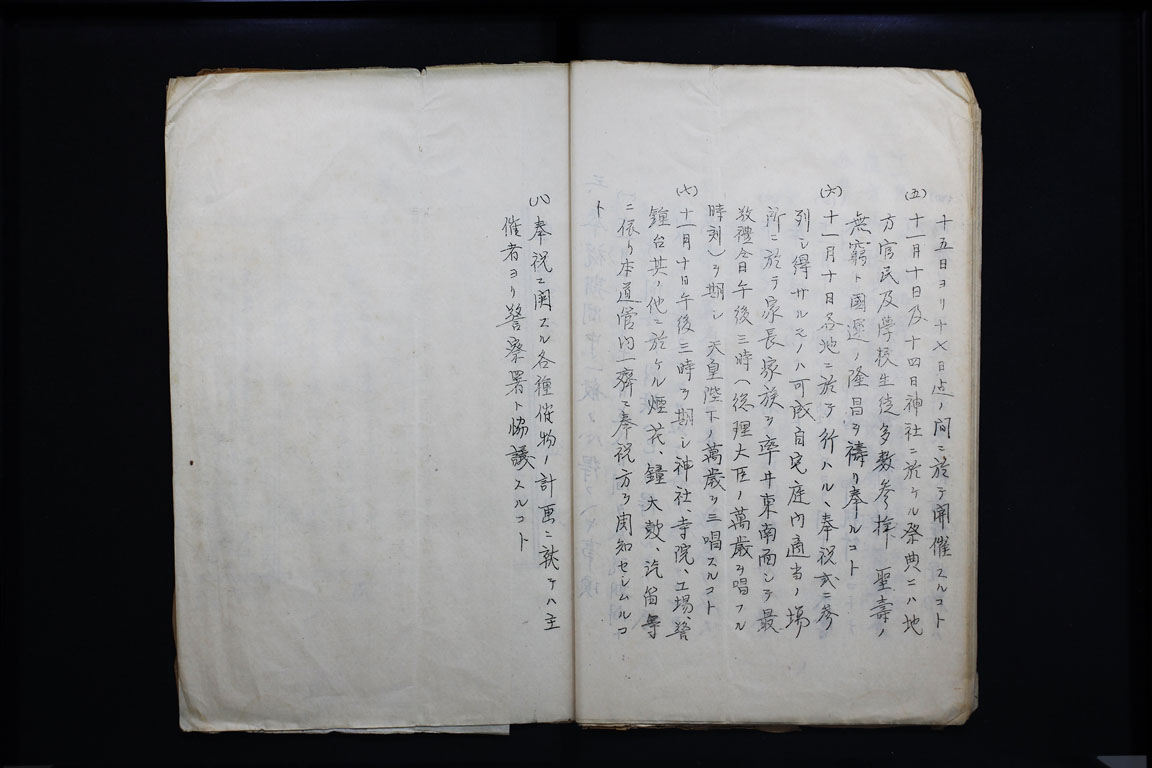 十五日ヨリ十七日迄ノ間ニ於テ開催スルコト
(五) 十一月十日及十四日神社ニ於ケル祭典ニハ地
方官民及學校生徒多数参拝 聖壽ノ
無窮ト國運ノ隆昌ヲ禱リ奉ルコト
(六) 十一月十日各地ニ於テ行ハル、奉祝式ニ参
列シ得サルモノハ可成自宅庭内適当ノ場
所ニ於テ家長家族ヲ率ヰ東南面シテ最
敬禮仝日午後三時(総理大臣ノ萬歳ヲ唱フル
時刻)ヲ期シ 天皇陛下ノ萬歳ヲ三唱スルコト
(七) 十一月十日午後三時ヲ期シ神社、寺院、工場、警
鐘台其ノ他ニ於ケル煙花、鐘、大鼓、汽笛等
ニ依リ本道管内一齊ニ奉祝方ヲ周知セシムルコ
ト
(八) 奉祝ニ関スル各種催物ノ計画ニ就テハ主
催者ヨリ警察署ト協議スルコト